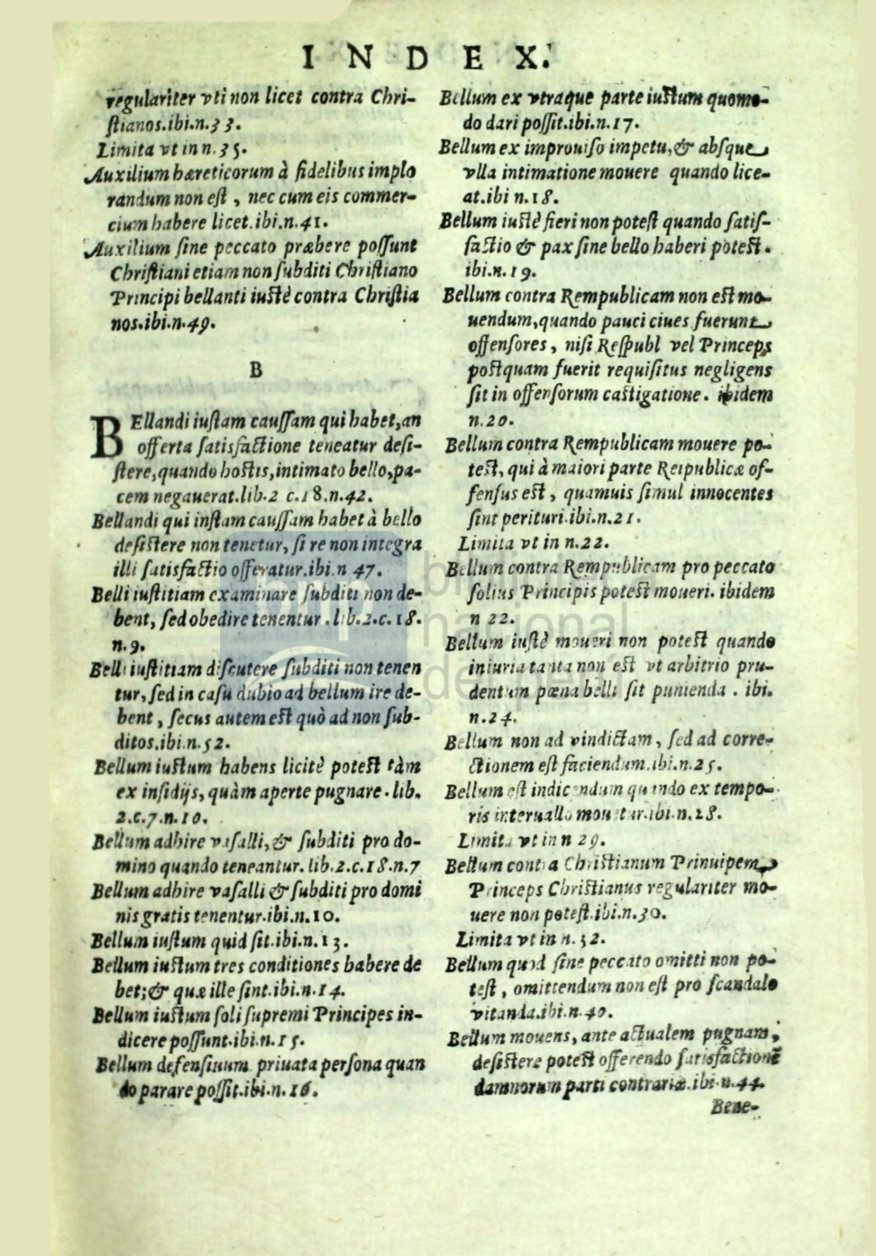 INDEX.
regulariter vti non licet contra Chri-
ſtianos.ibi.n.33.
Limita vt in n.35.
Auxilium hæreticorum à fidelibus implo
randum non eſt, nec cum eis commer-
cium habere licet.ibi.n.41.
Auxilium ſine peccato præbere poſſunt
Chriſtiani etiam non ſubditi Chriſtiano
Principi bellanti iuſtè contra Chriſtia
nos.ibi.n.49.
B
BEllandi iuſtam cauſſam qui habet, an
offerta ſatisfactione teneatur deſi-
ſtere, quando hoſtis, intimato bello, pa-
cem negauerat.lib.2 c.18.n.42.
Bellandi qui inſtam cauſſam habet à bello
deſiſtere non tenetur, ſi re non integra
illi ſatisfactio offeratur.ibi.n 47.
Belli iuſtitiam examinare ſubditi non de-
bent, ſed obedire tenentur.lib.2.c.18.
n.9.
Belli iuſtitiam diſcutere ſubditi non tenen
tur, ſed in caſu dubio ad bellum ire de-
bent, ſecus autem eſt quò ad non ſub-
ditos.ibi.n.52.
Bellum iuſtum habens licitè poteſt tàm
ex inſidijs, quàm aperte pugnare.lib.
2.c.7.n.10.
Bellum adhire vaſalli, & ſubditi pro do-
mino quando teneantur.lib.2.c.18.n.7
Bellum adhire vaſalli & ſubditi pro domi
nis gratis tenentur.ibi.n.10.
Bellum iuſtum quid ſit.ibi.n.13.
Bellum iuſtum tres conditiones habere de
bet; & quæ ille ſint.ibi.n.14.
Bellum iuſtum ſoli ſupremi Principes in-
dicere poſſunt.ibi.n.15.
Bellum defenſiuum priuata perſona quan
do parare poſſit.ibi.n.16.
Bellum ex vtraque parte iuſtum quomo-
do dari poſſit.ibi.n.17.
Bellum ex improuiſo impetu, & abſque
vlla intimatione mouere quando lice-
at.ibi n.18.
Bellum iuſtè fieri non poteſt quando ſatiſ-
factio & pax ſine bello haberi poteſt.
ibi.n.19.
Bellum contra Rempublicam non eſt mo-
uendum, quando pauci ciues fuerunt
offenſores, niſi Reſpubl vel Princeps
poſtquam fuerit requiſitus negligens
ſit in offenſorum caſtigatione. ibidem
n.20.
Bellum contra Rempublicam mouere po-
teſt, qui à maiori parte Reipublicæ of-
fenſus eſt, quamuis ſimul innocentes
ſint perituri.ibi.n.21.
Limita vt in n.22.
Bellum contra Rempublicam pro peccato
ſolius Principis poteſt moueri. ibidem
n 22.
Bellum iuſtè moueri non poteſt quando
iniuria tanta non eſt vt arbitrio pru-
dentum pœna belli ſit punienda. ibi.
n.24.
Bellum non ad vindictam, ſed ad corre-
ctionem eſt faciendum.ibi.n.25.
Bellum eſt indicendum quando ex tempo-
ris interuallo mouetur.ibi.n.28.
Limita vt in n 29.
Bellum contra Chriſtianum Prinuipem
Princeps Chriſtianus regulariter mo-
uere non poteſt.ibi.n.30.
Limita vt in n.32.
Bellum quod ſine peccato omitti non po-
teſt, omittendum non eſt pro ſcandalo
vitanda.ibi.n.40.
Bellum mouens, ante actualem pugnam,
deſiſtere poteſt offerendo ſatisfactionē
damnorum parti contrariæ.ibi.n.44.
Bene-